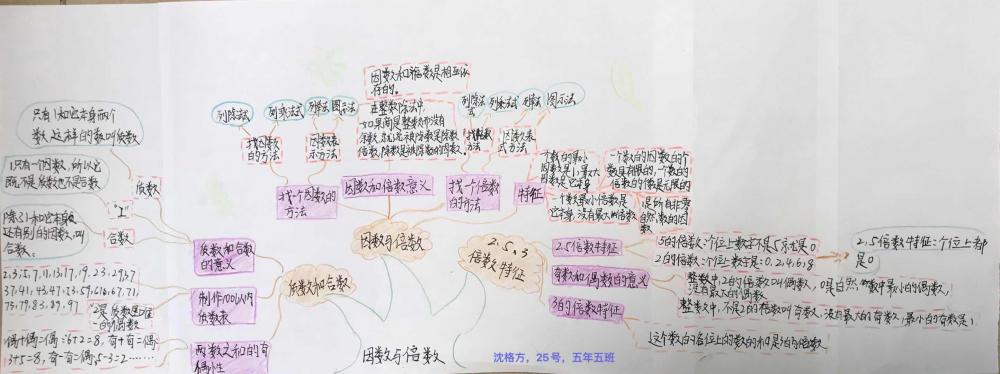 只有1和它本身两个
数,这样的数叫质数
1只有一个因数,所以它
既不是质数也不是合数
除了1和它本身
还有别的因数,叫
合数。
质数
"1"
合数
质数和合数
的意义
2,3,5,7,11,13,17,19,23,29,31,
37,41,43,47,53,59,61,67,71,
73,79,83,89,97
制作100以内
质数表
2是质数里唯
一的偶数
偶+偶=偶:6+2=8,奇+奇=偶:
3+5=8,奇-奇=偶,5-3=2……
两数之和的奇
偶性
质数和合数
列除法式
列乘法式
列除法
图示法
找因数
的方法
因数表
示方法
找一个因数的
方法
因数和倍数是相互依
存的。
在整数除法中,
如果商是整数而没有
余数,就说被除数是除数
倍数,除数是被除数的因数。
因数和倍数意义
列除法
式
列乘法式
列举法
图示法
方法
因数表
式方法
找一个倍数
的方法
一个数的最小
因数是1,最大
因数是它本身
一个数的因数的个
数是有限的,一个数的
倍数的个数是无限的
一个数最小倍数是
它本身,没有最大的倍数
1是所有非零
自然数的因
数
特征
因数与倍数
2,5,3
倍数特征
2.5倍数特征
5的倍数:个位上数字不是5就是0
2的倍数:个位上数字是:0,2,4,6,8
2.5倍数特征:个位上都
是0
奇数和偶数的意义
整数中,2的倍数叫偶数,0是自然数中最小的偶数,
没有最大的偶数
整数中,不是2的倍数叫奇数,没有最大的奇数,最小的奇数是1
3的倍数特征
这个数的各位上的数的和是3的倍数
因数与倍数
沈格方,25号,五年五班